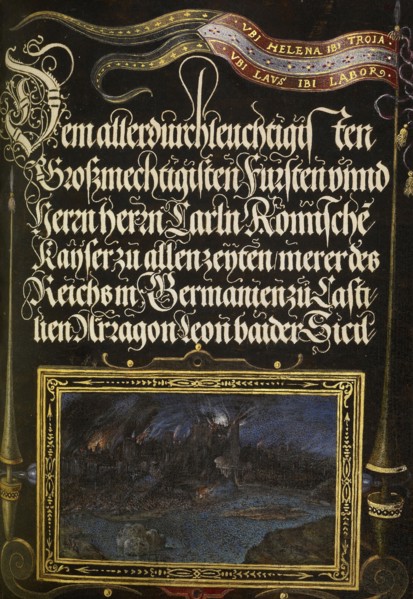 VBI HELENA IBI TROIA.
VBI LAVS IBI LABOR.
Dem allerdurchleuchtigisten
Großmechtigisten Fursten vnnd
Herrn herrn Carln Römischē
Kayser zu allen zeyten merer des
Reichs in Germanien zu Casti
lien Arragon Leon baider Sicil